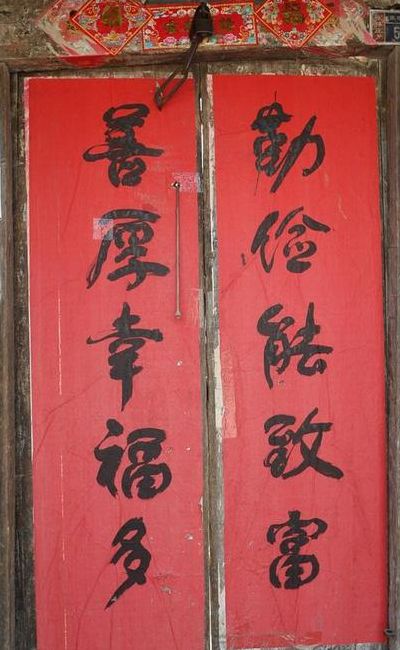 勤俭能致富
善厚幸福多